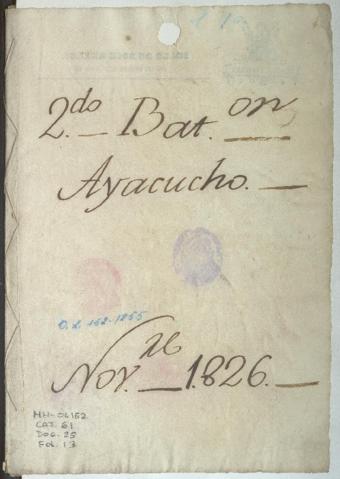 2.do Bat.on
Ayacucho.
O.L 152-1855
Nov.re 1826.
MH-OL152
CAJ. 61
DOC. 25
FOL. 13